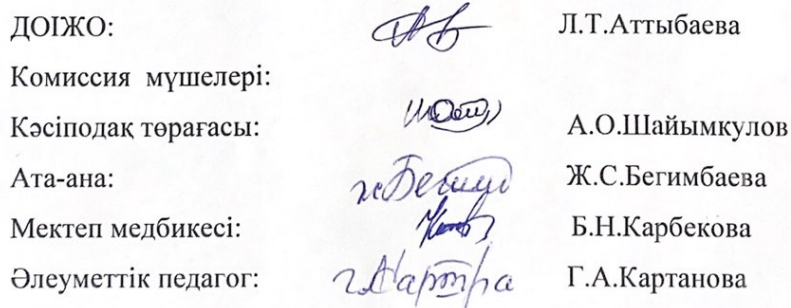 ДОІЖО: Л.Т.Аттыбаева
Комиссия мүшелері:
Кәсіподақ төрағасы: А.О.Шайымкулов
Ата-ана: Ж.С.Бегимбаева
Мектеп медбикесі: Б.Н.Карбекова
Әлеуметтік педагог: Г.А.Картанова